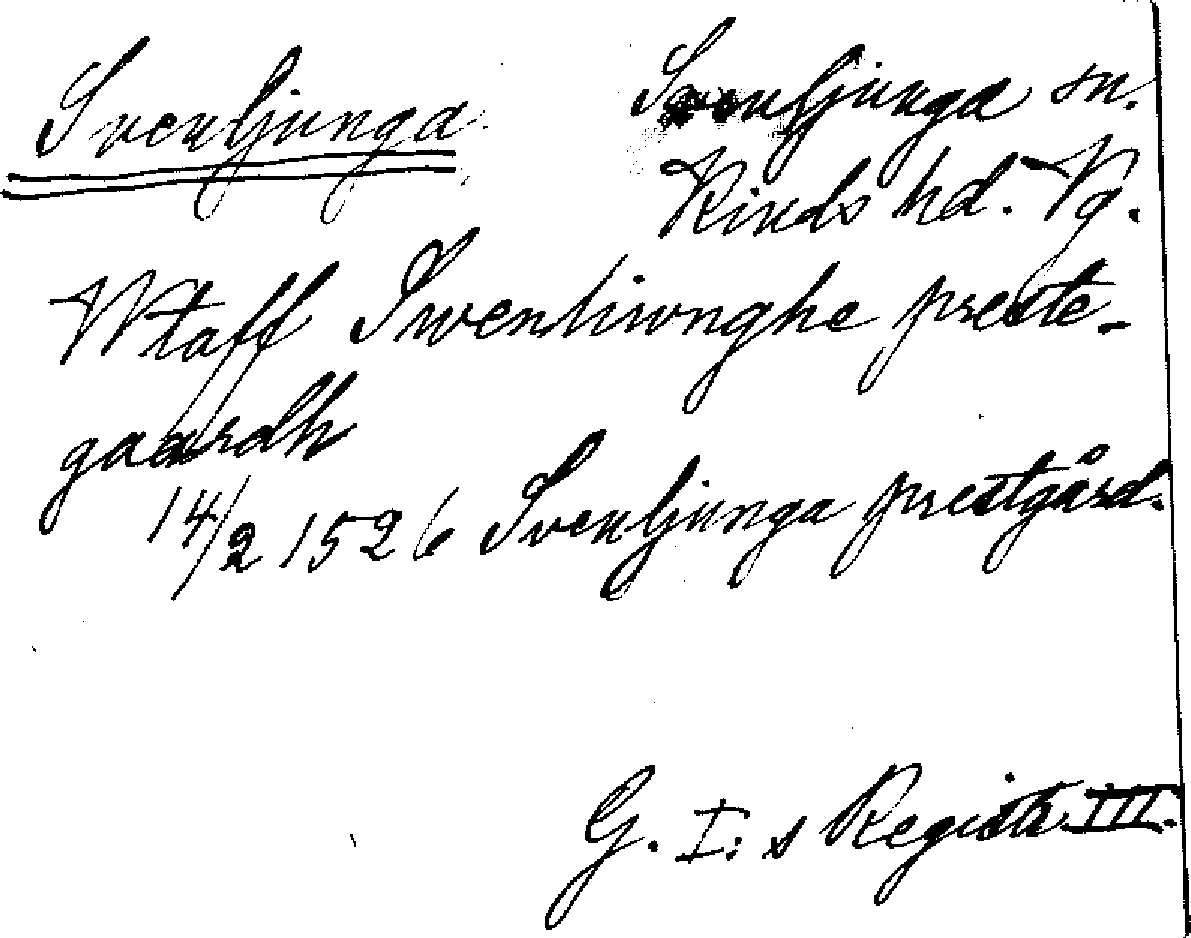 Svenljunga
Svenljunga sn.
Kinds hd. Vg.
Wtaff Swenliwnghe preste-
gaardh
14/2 1526 Svenljunga prestgård.
G. I:s Registr. III.